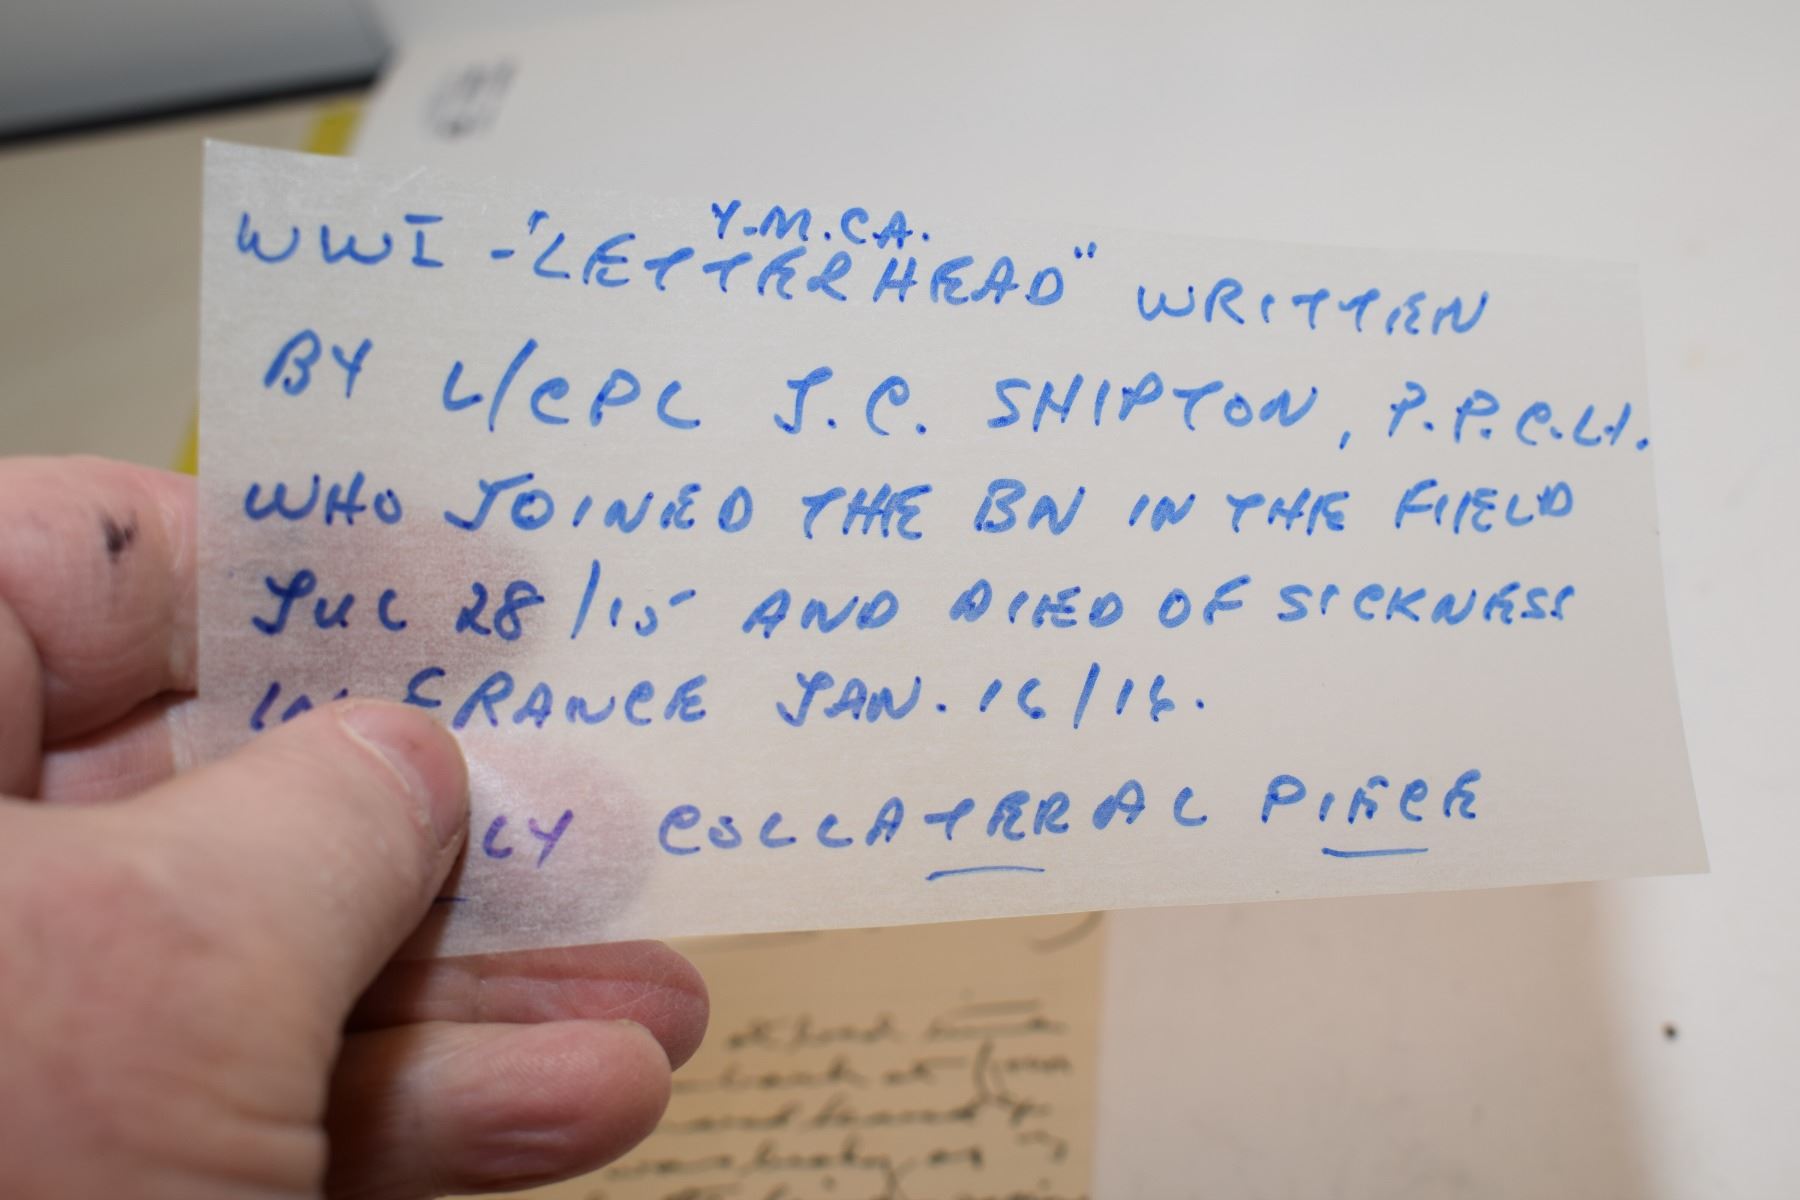 Y.M.C.A.
WWI - "LETTERHEAD" WRITTEN
BY L/CPL J.C. SHIPTON, P.P.C.L.I.
WHO JOINED THE BN IN THE FIELD
JUL 28/15 AND DIED OF SICKNESS
IN FRANCE JAN. 16/16.
LY COLLATERAL PIECE